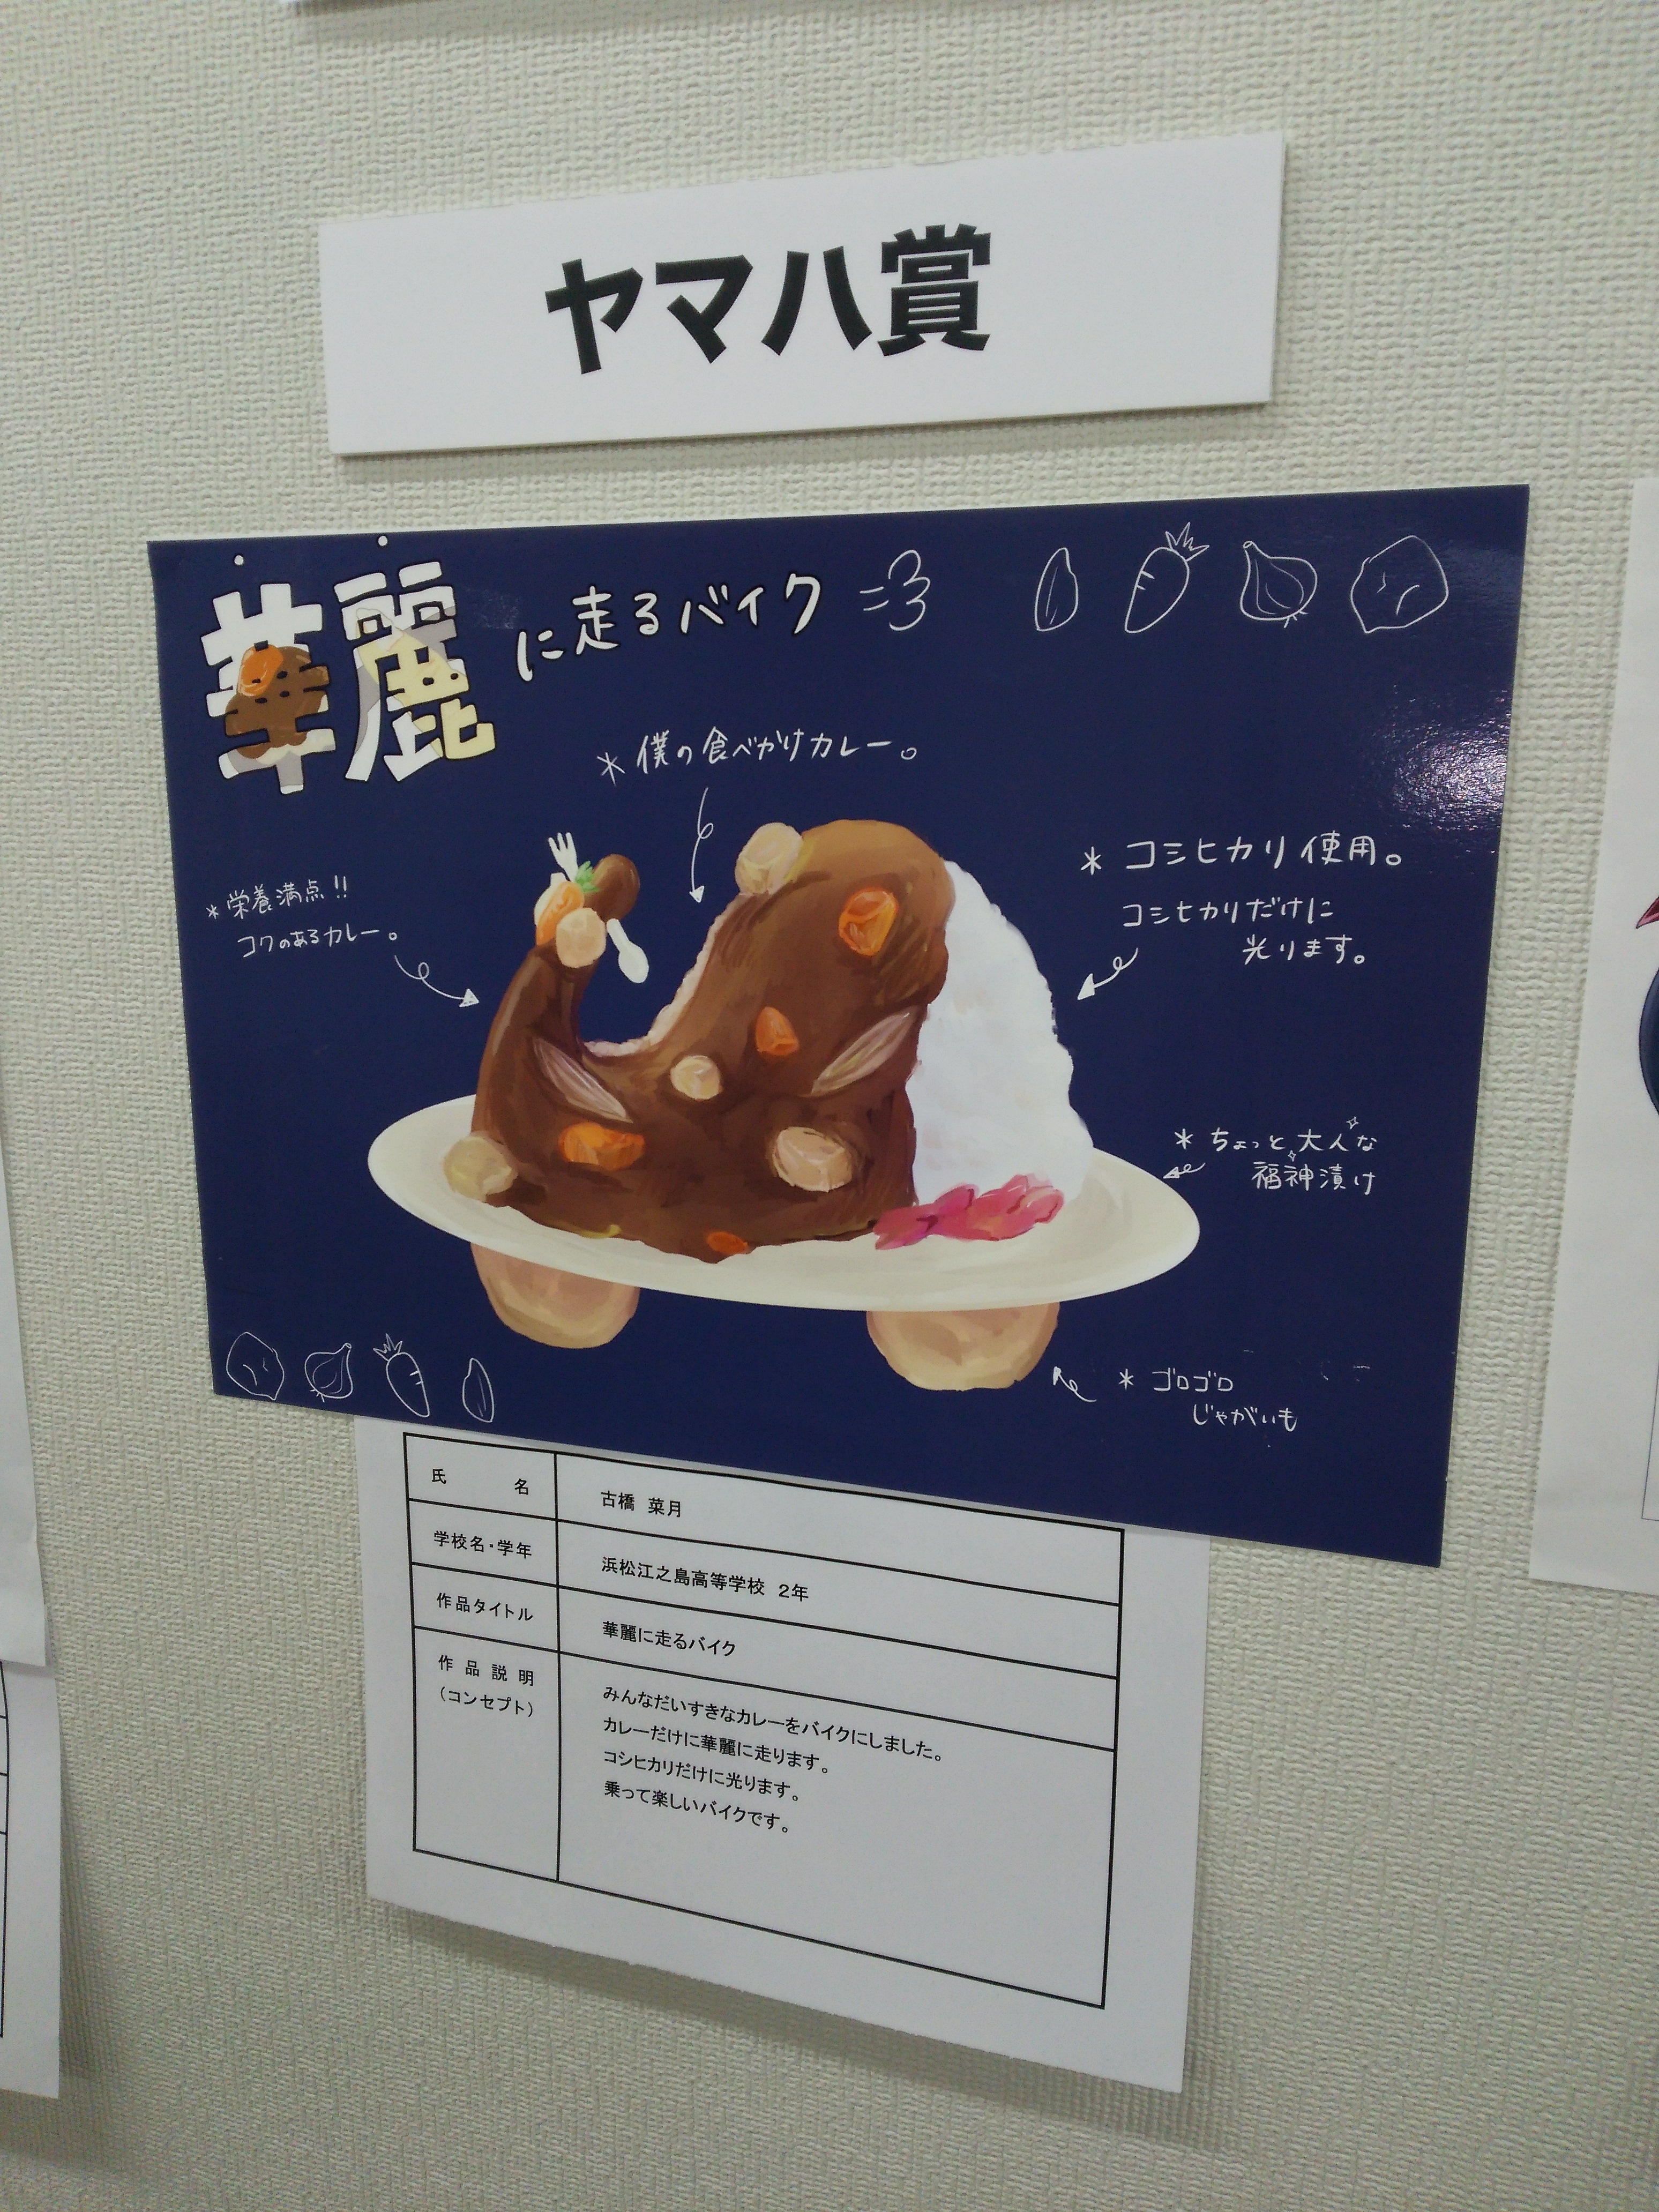 ヤマハ賞
華麗に走るバイク
*僕の食べかけカレー。
*栄養満点!!
コクのあるカレー。
* コシヒカリ使用。
コシヒカリだけに
光ります。
* ちょっと大人な
福神漬け
* ゴロゴロ
じゃがいも
氏 名 古橋 菜月
学校名・学年 浜松江之島高等学校 2年
作品タイトル 華麗に走るバイク
作品説明
(コンセプト)
みんなだいすきなカレーをバイクにしました。
カレーだけに華麗に走ります。
コシヒカリだけに光ります。
乗って楽しいバイクです。